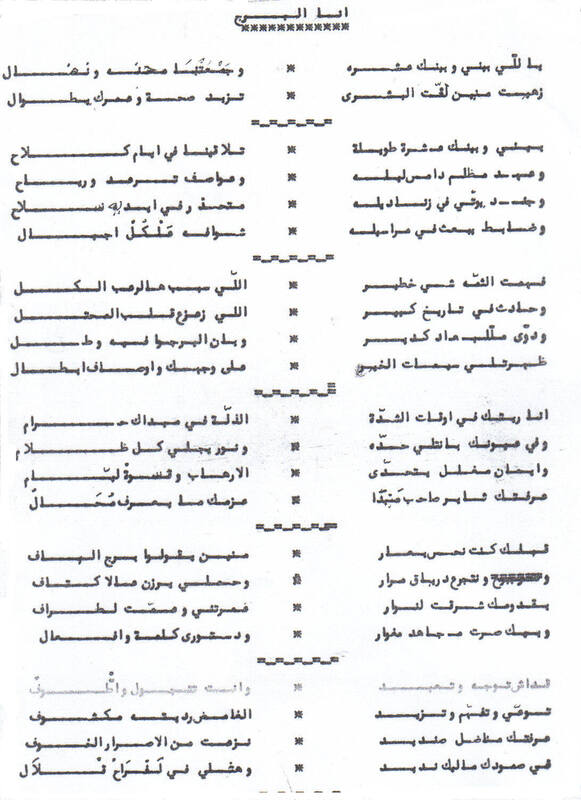 انا البرج
************
يا للّي بيني وبينك عشره * وجَمْعَتْنَا محنه ونضال
زهيت منين لقّت البشرى * تزيد صحة وعمرك يطوال
=-=-=-=-=
بيني وبينك عشرة طويلة * تلاقينا في ايام كلاح
وعبد مظلم دامس ليله * وعواصف ترعد ورياح
وجند يوتّي في زناديله * متحذر في ايديه سلاح
وضابط يبعث في مراسيله * شوافه عَلْكُلْ اجبال
=-=-=-=-=
فهمت الثمّه شي خطير * اللّي سبب هالرعب الكل
وحادث في تاريخ كبير * اللي زعزع قلب المحتل
ودوّى مللبعداد كدير * وبان البرجوا فيه وطل
ظهرتلي سيمات الخير * على وجهك واوصاف ابطال
=-=-=-=-=
انا ريتك في اوقات الشدّة * الذلّة في مبداك حرام
وفي عيونك بانتلي حدّه * ونور يجلي كل ظلام
وايمان مغلل يتحدّى * الارهاب وقسوةْ ليّام
عرفتك ثاير صاحب مَبْدَا * عزمك ما يعرف مُحَالْ
=-=-=-=-=
قبلك كنت نحس بعار * منين يقولوا برج الباف
ونتجرع درياق مرار * وحملي يرزن عالاكتاف
بقدومك شرقت لنوار * غمرتني وعمّت لطراف
وبيك صرت مجاهد مغوار * ودستورى كلمة وافعال
=-=-=-=-=
قداش توجه وتعبد * وانت تتجول واطُّوفْ
توعّي وتفهّم وتزيد * الغامض رديته مكشوف
عرفتك مناضل صنديد * نزعت من الاصرار الخوف
في صمودك مالك نديد * وهقلي في لَفْرَاحْ تْلاَل
=-=-=-=-=